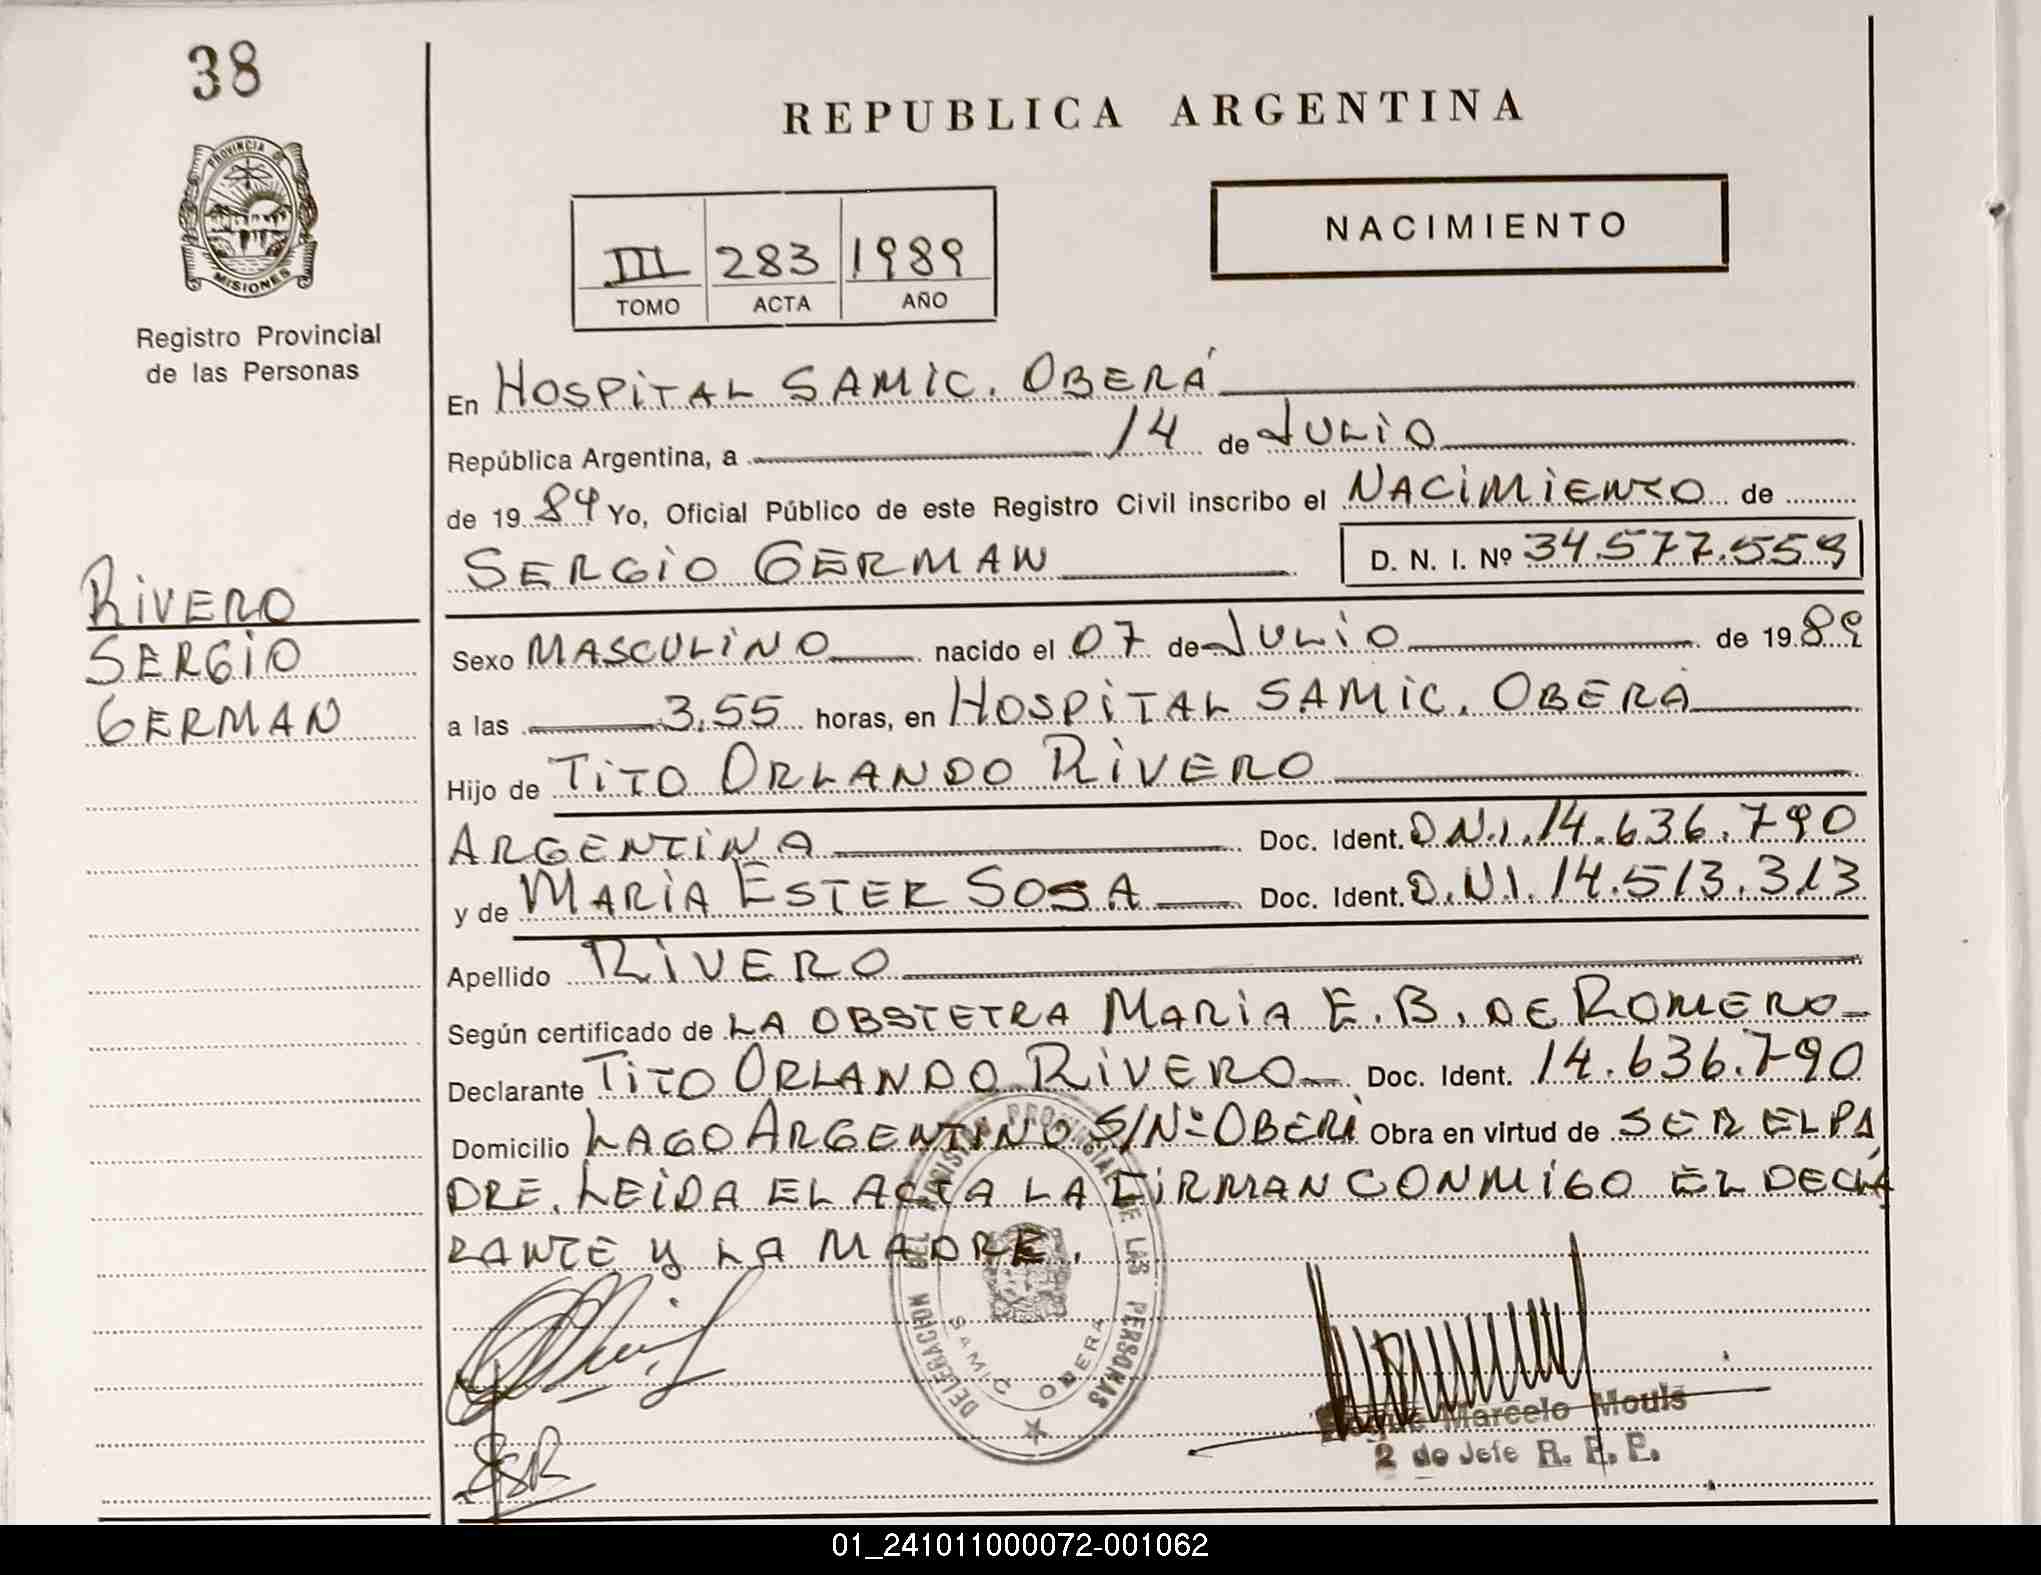 38
REPUBLICA ARGENTINA
PROVINCIA DE
MISIONES
Registro Provincial
de las Personas
NACIMIENTO
III 283 1989
TOMO ACTA AÑO
En HOSPITAL SAMIC. OBERÁ
República Argentina, a 14 de JULIO
de 1989 Yo, Oficial Público de este Registro Civil inscribo el NACIMIENTO de
SERGIO GERMAN D. N. I. Nº 34.577.559
RIVERO
SERGIO
GERMAN
Sexo MASCULINO nacido el 07 de JULIO de 1989
a las 3,55 horas, en HOSPITAL SAMIC. OBERÁ
Hijo de TITO ORLANDO RIVERO
ARGENTINA Doc. Ident. D.N.I. 14.636.790
y de MARIA ESTER SOSA Doc. Ident. D.N.I. 14.513.313
Apellido RIVERO
Según certificado de LA OBSTETRA MARIA E. B. DE ROMERO
Declarante TITO ORLANDO RIVERO Doc. Ident. 14.636.790
Domicilio LAGO ARGENTINO S/Nº OBERÁ Obra en virtud de SER EL PA
DRE. LEIDA EL ACTA LA FIRMAN CONMIGO EL DECLA
RANTE Y LA MADRE.
DELEGACION DEL REGISTRO PROVINCIAL DE LAS PERSONAS
SAMIC OBERA
Marcelo Mouls
2 do Jefe R. P. P.
01_241011000072-001062